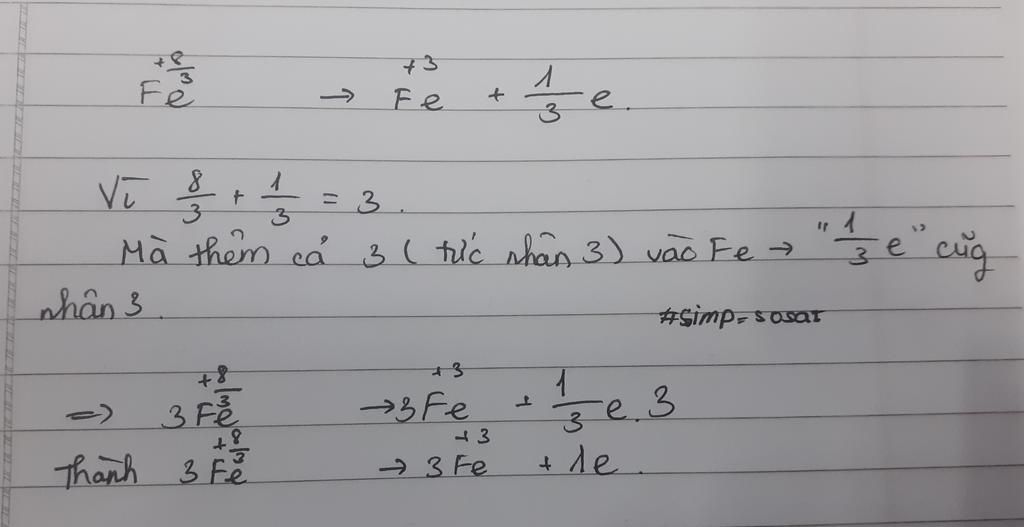 Fe^{+8/3} → Fe^{+3} + 1/3 e.
Vì 8/3 + 1/3 = 3.
Mà thêm cả 3 (tức nhân 3) vào Fe → "1/3 e" cũg
nhân 3.
#simp=sosat
=> 3Fe^{+8/3} → 3Fe^{+3} + 1/3 e.3
Thành 3Fe^{+8/3} → 3Fe^{+3} + 1e.